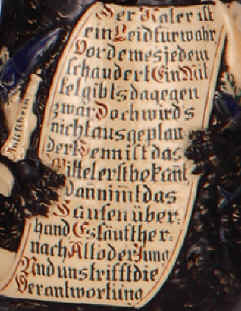 Der Kater ist
ein Leid fürwahr
Vor dem es jedem
schaudert Ein Mit
tel gibts dagegen
zwar Doch wird's
nicht ausgeplau
dert Denn ist das
Mittel erst bekant
dann nimt das
Saufen über:
hand Es läuft her:
nach Alt oder Jung
Und uns trifft die
Verantwortung